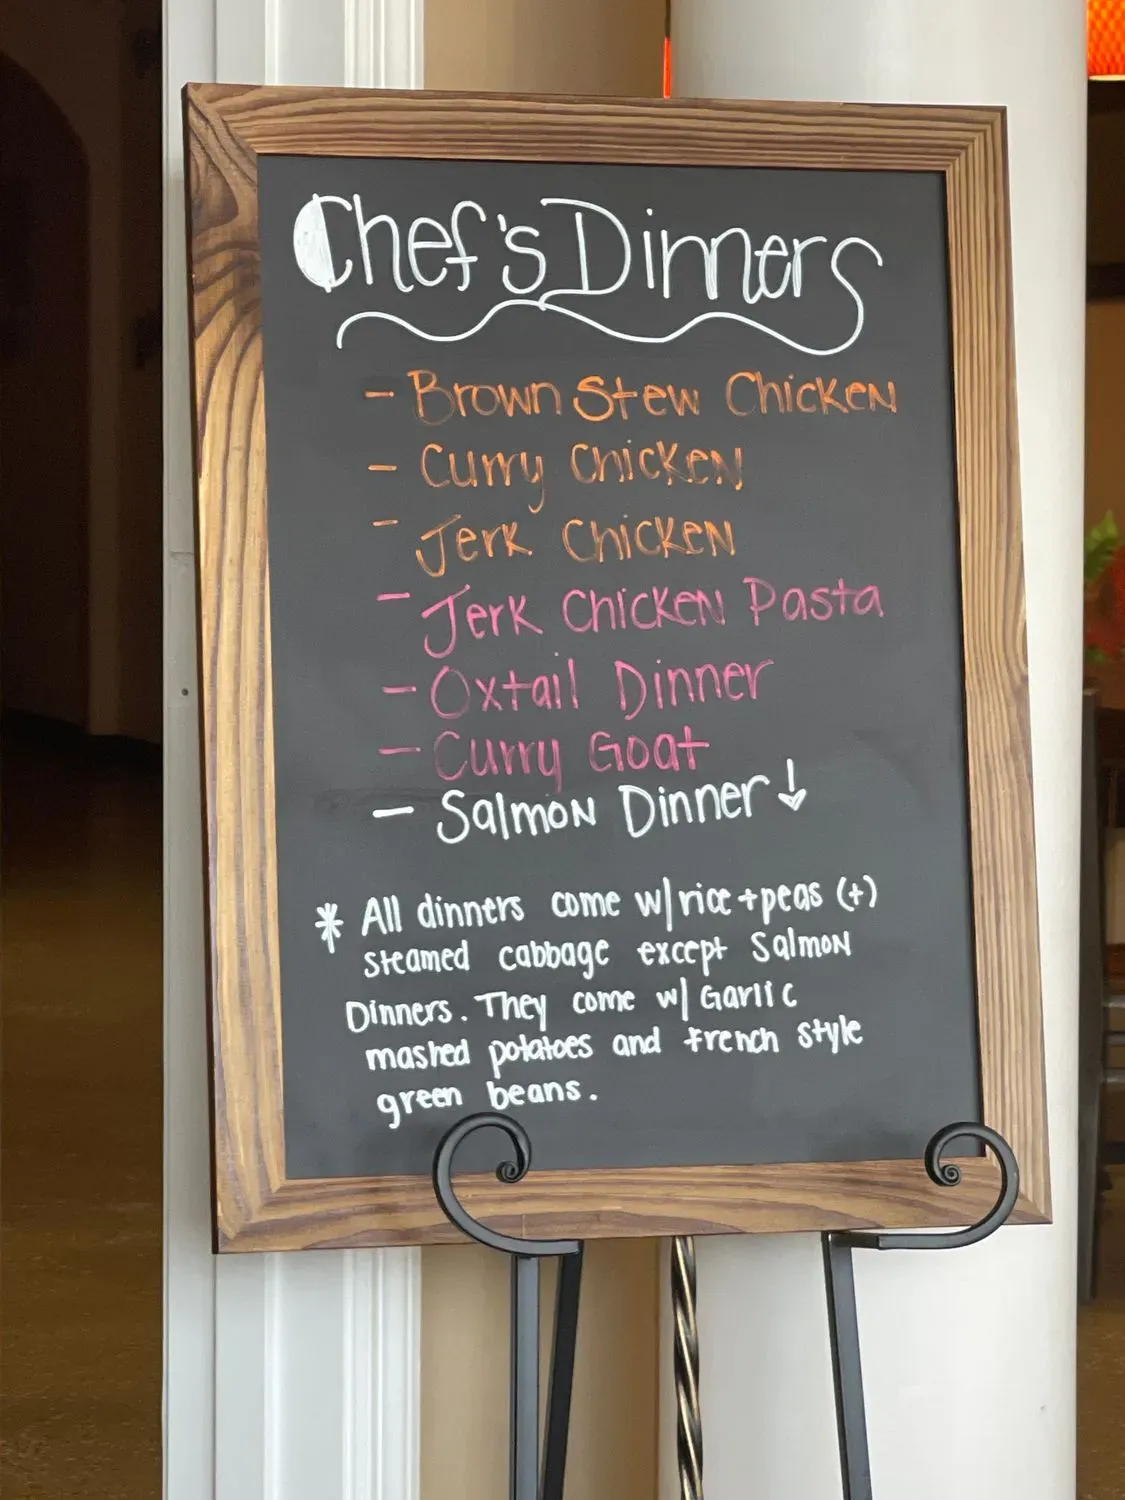 Chef's Dinners
- Brown Stew Chicken
- Curry Chicken
- Jerk Chicken
- Jerk Chicken Pasta
- Oxtail Dinner
- Curry Goat
- Salmon Dinner ↓
* All dinners come w/ rice + peas (+)
steamed cabbage except Salmon
Dinners. They come w/ Garlic
mashed potatoes and French style
green beans.